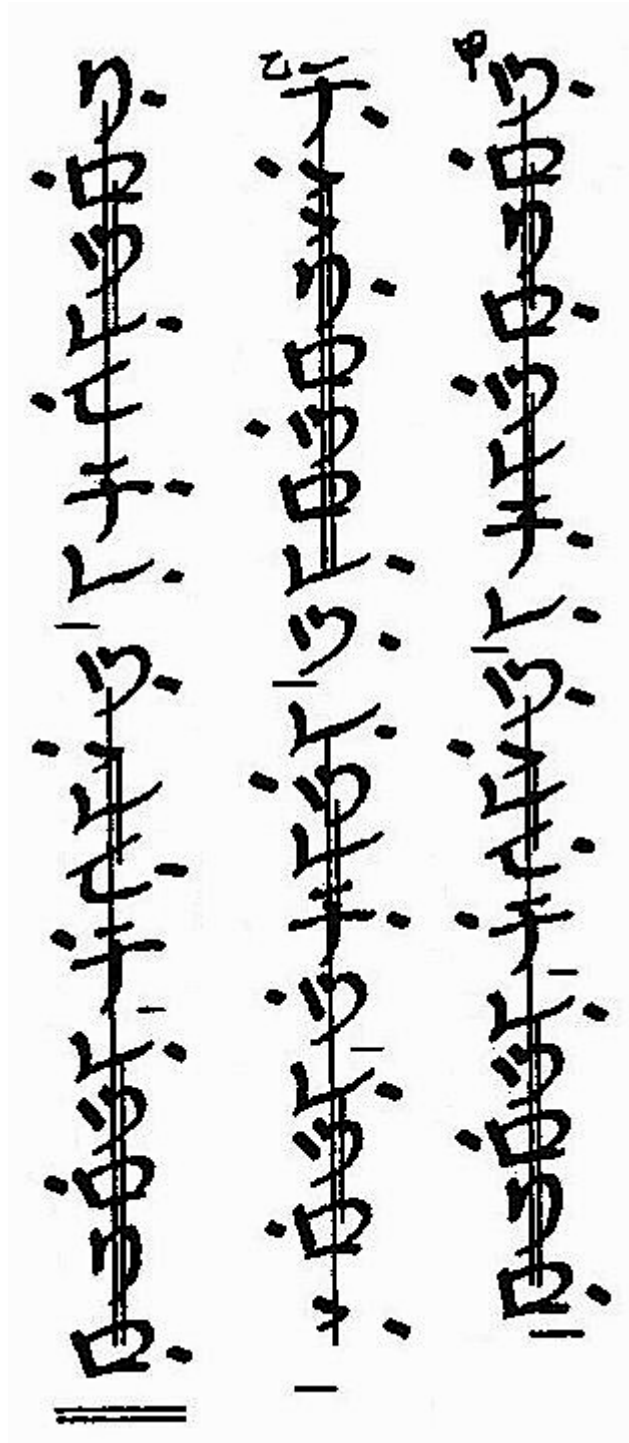 甲ツロリロツレチレツヽレヒチレツロリロ
乙チヽヽリロツロレツレツレチツレツロヽ
リロツレヒチレツヽレヒチレツロリロ